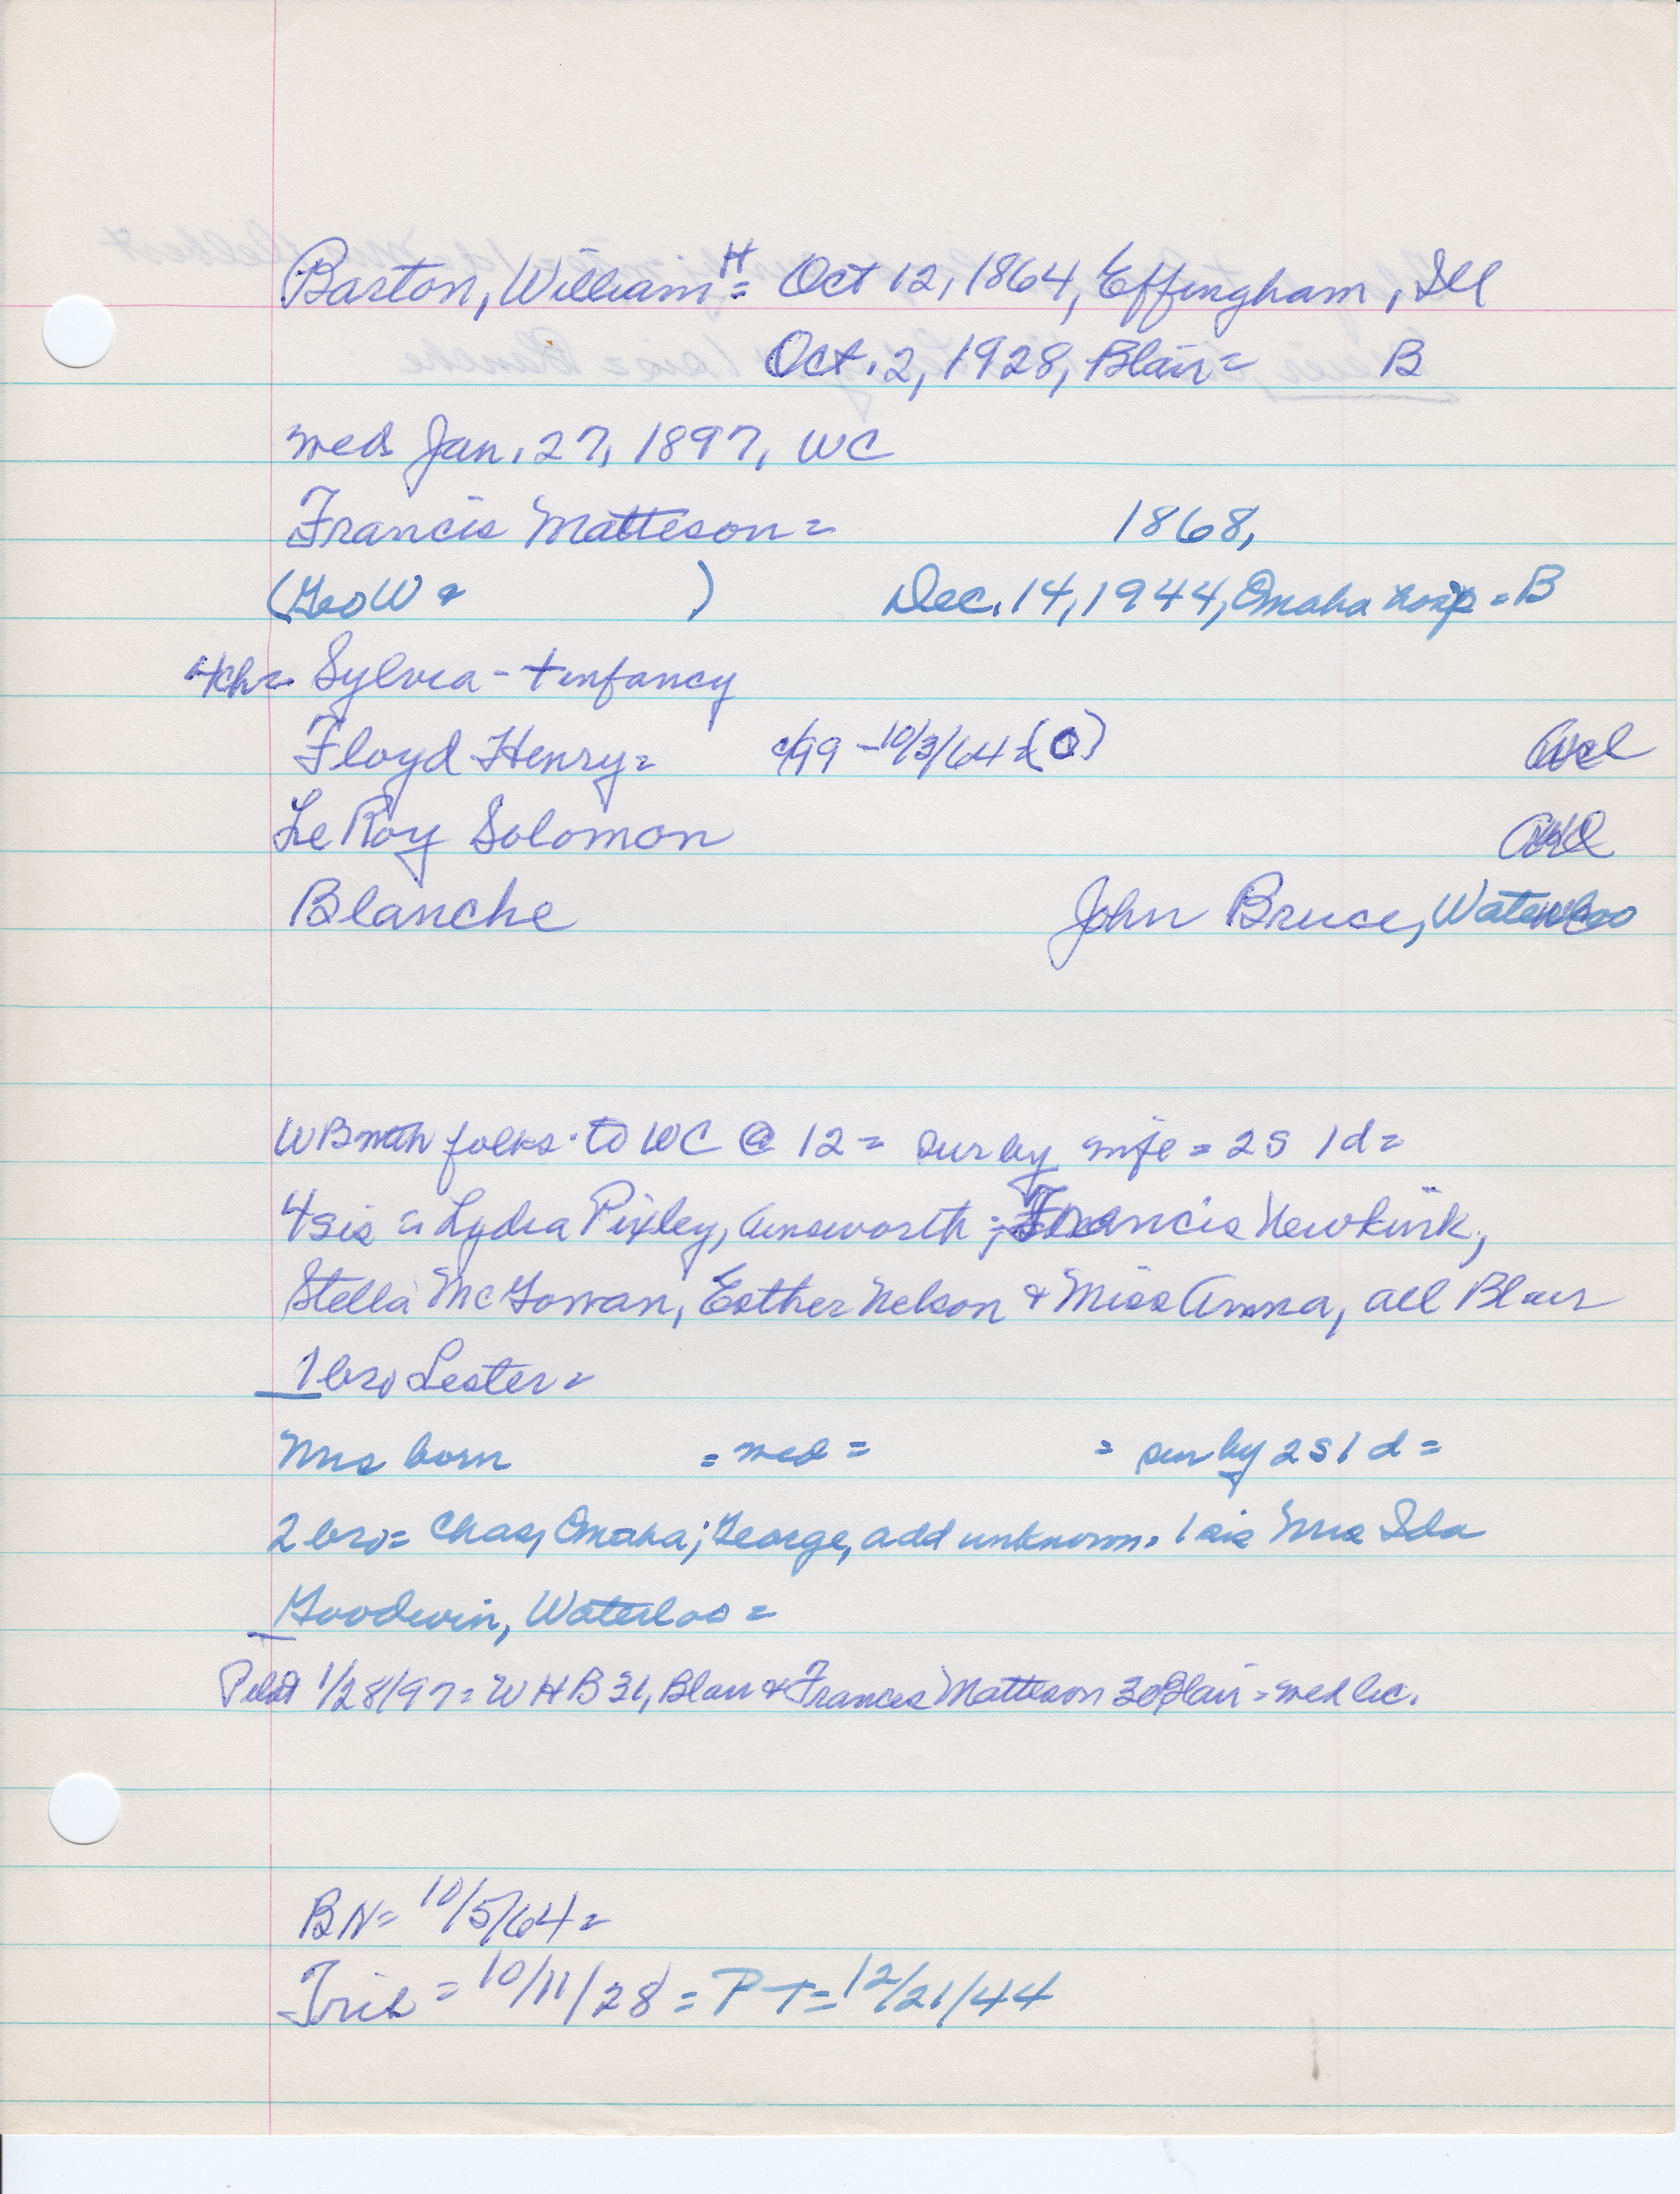 Barton, William H = Oct 12, 1864, Effingham, Ill
Oct. 2, 1928, Blair = B
med Jan. 27, 1897, WC
Francis Matteson = 1868,
(Geo W & ) Dec. 14, 1944, Omaha hosp = B
4ch = Sylvia - + infancy
Floyd Henry = c/99 - 10/3/64 = (O)
LeRoy Solomon
Blanche John Bruce, Waterloo
WB with folks to WC @ 12 = sur by wife = 2s 1d =
4 sis = Lydia Pixley, Ainsworth; Francis Newkirk,
Stella McGowan, Esther Nelson & Miss Anna, all Blair
1 bro Lester =
Mrs born = med = = sur by 2s 1d =
2 bro = Chas, Omaha; George, add unknown. 1 sis Mrs Ida
Goodwin, Waterloo =
Pilot 1/28/97 = WHB 31, Blair & Frances Matteson 30 Blair = med lic.
BN = 10/5/64 =
Trib = 10/11/28 = PT = 12/21/44